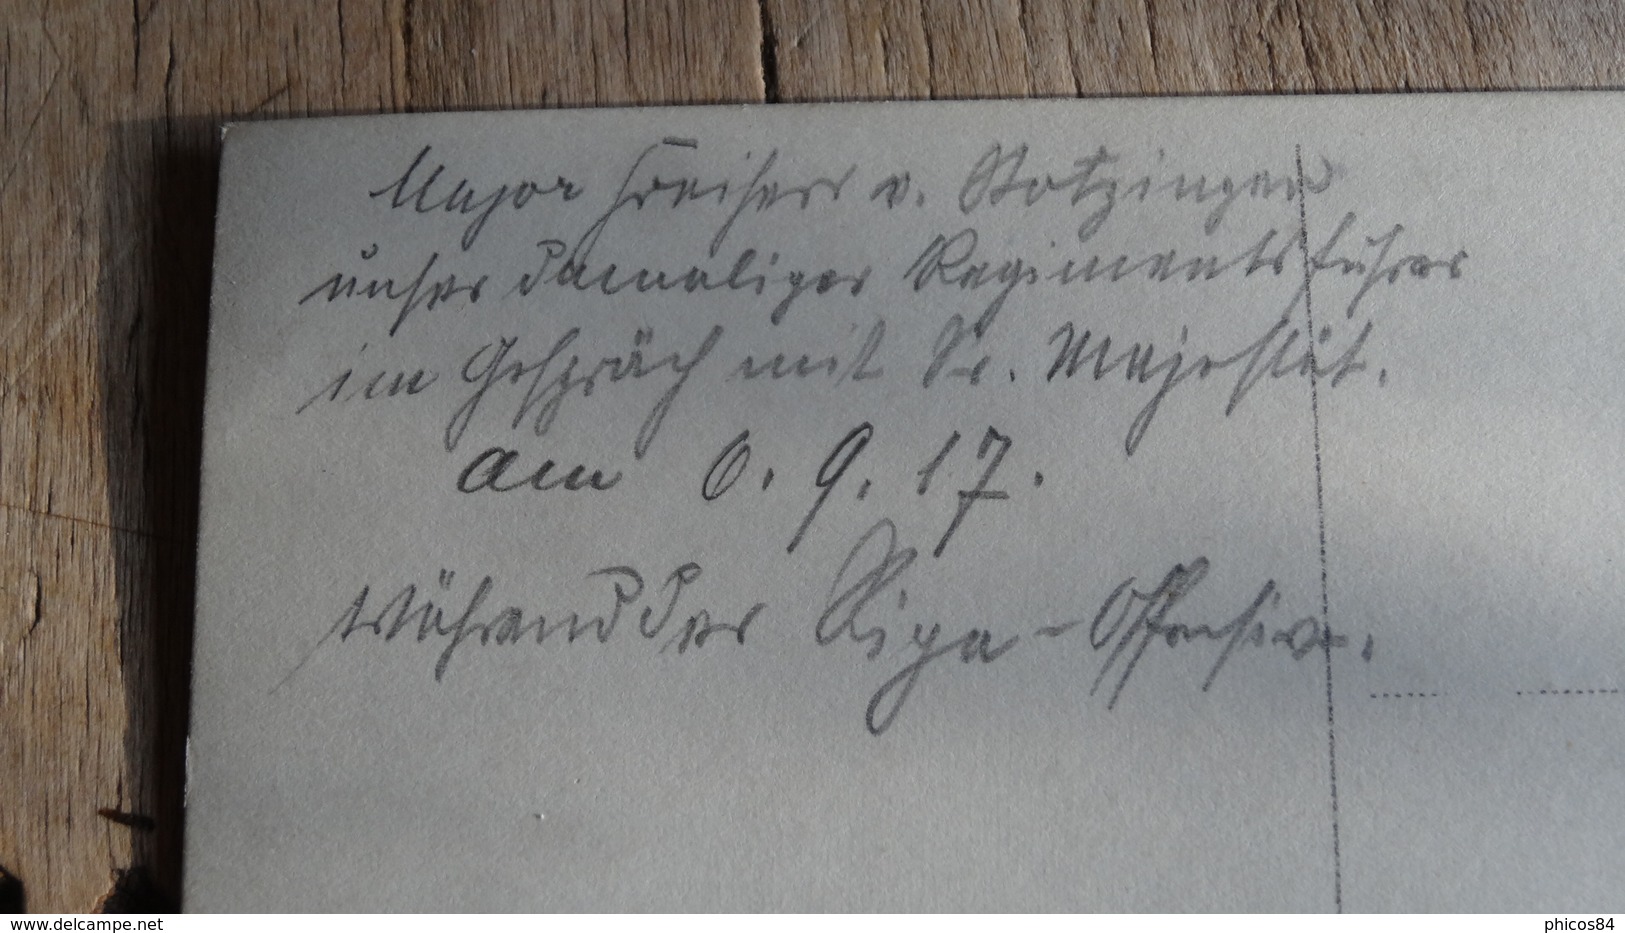 Major Freiherr v. Stotzingen
unser damaliger Regimentsführer
im Gespräch mit Sr. Majestät.
am 6. 9. 17.
während der Riga-Offensive.
delcampe.net
phicos84